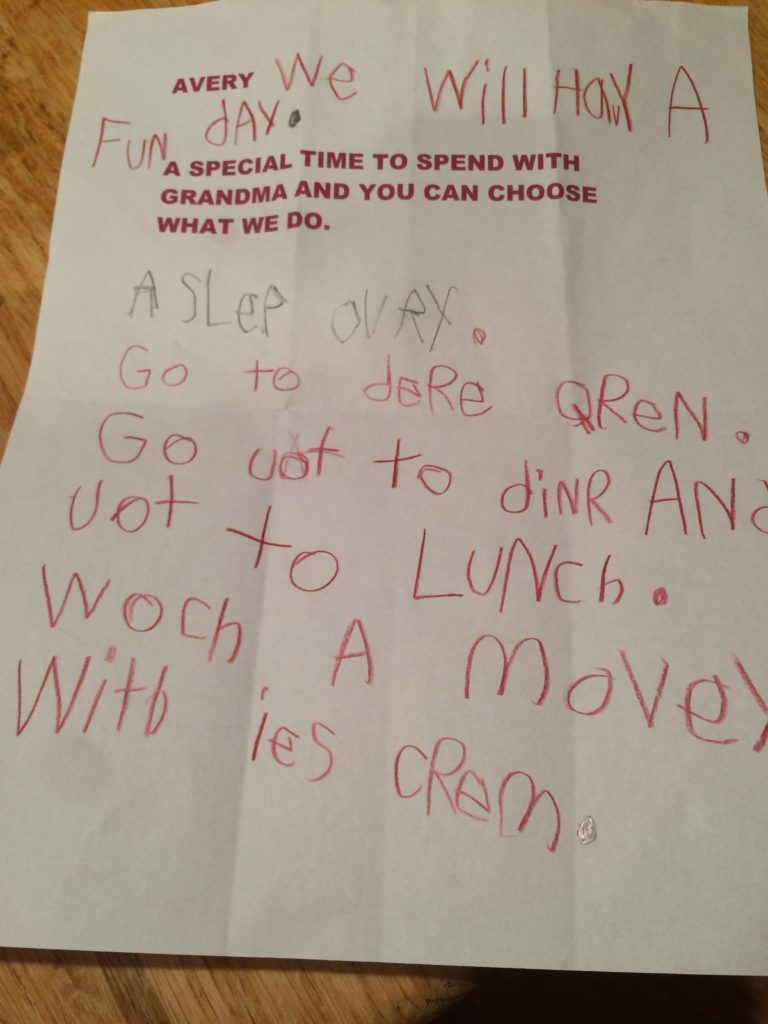 AVERY We Will HAVY A
FUN dAY.
A SPECIAL TIME TO SPEND WITH
GRANDMA AND YOU CAN CHOOSE
WHAT WE DO.
A SLEP OVRY.
Go to deRe QReN.
Go uot to diNR ANd
uot to LUNCh.
Woch A MoveY
With ies cRem.